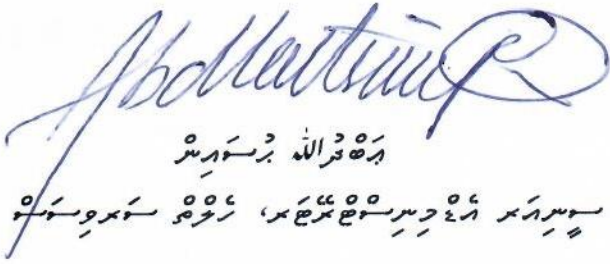 ޢަބްދުﷲ ޙުސައިން
ސީނިއަރ އެޑްމިނިސްޓްރޭޓަރ، ހެލްތް ސަރވިސަސް